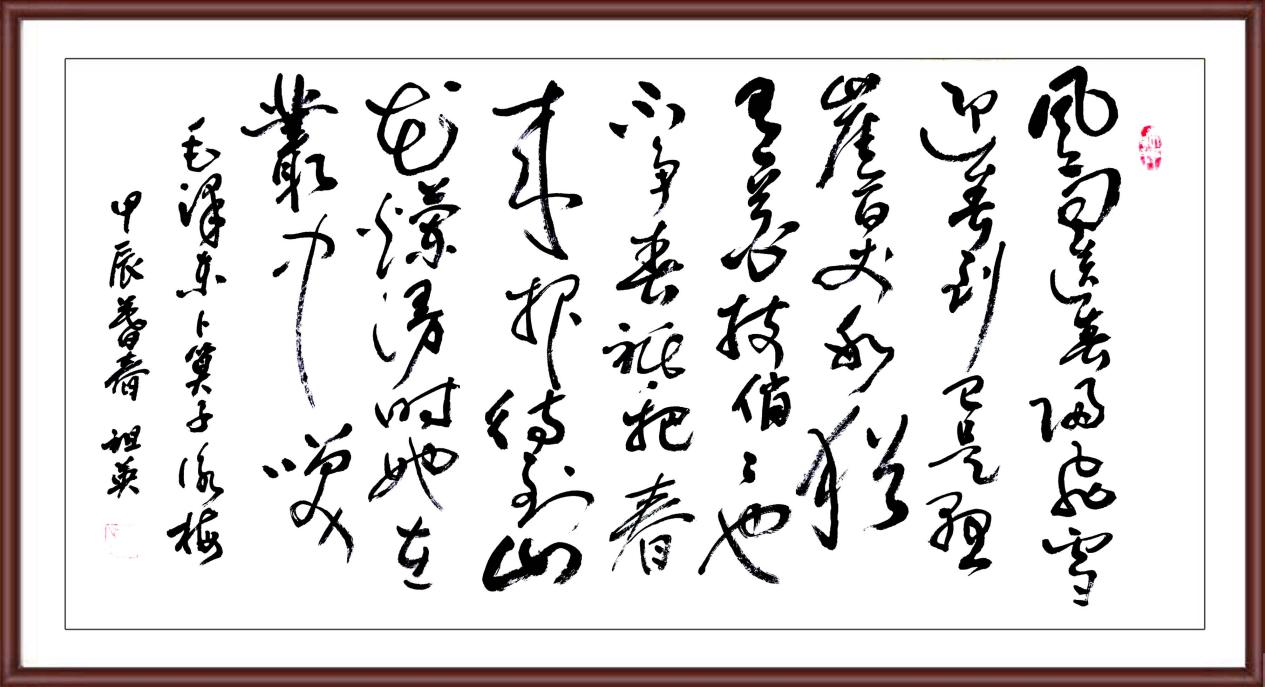 風雨送春歸飛雪
迎春到已是懸
崖百丈冰猶
有花枝俏〻也
不争春祇把春
来报待到山
花爛漫时她在
叢中咲
毛澤東卜算子詠梅
甲辰暮春 祖英